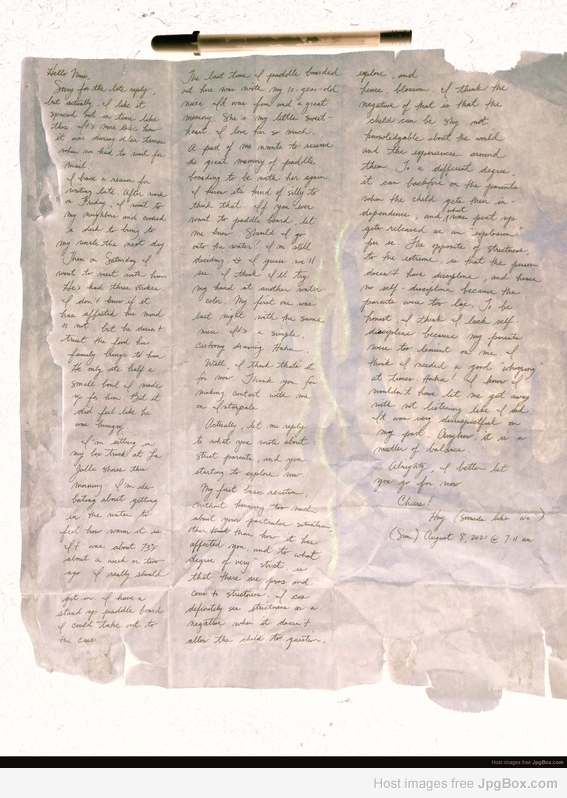 Hello Nov,
Sorry for the late reply,
but actually, I like it
spaced out in time like
this. It's more like how
it was during older times
when we had to wait for
mail.
I have a reason for
writing late. After work
on Friday, I went to
my neighbors and cooked
a dish to bring to
my uncle the next day.
Then on Saturday I
went to visit with him.
He's had three strokes.
I don't know if it
has affected his mind
or not, but he doesn't
trust the food his
family brings to him.
He only ate half a
small bowl I made
up for him. But it
did feel like he
was hungry.
I'm sitting in
my box truck at La
Jolla Shores this
morning. I'm de-
bating about getting
in the water to
feel how warm it is.
It was about 73°
about a week or two
ago. I really should
get in. I have a
stand up paddle board
I could take out to
the cove.
The last time I paddle boarded
out here was with my 10-year-old
niece. It was fun and a great
memory. She's my little sweet-
heart. I love her so much.
A part of me wants to reserve
the great memory of paddle
boarding to be with her again.
I know its kind of silly to
think that. If you ever
want to paddle board let
me know. Should I go
into the water? I'm still
deciding. I guess we'll
see. I think I'll try
my hand at another water
color. My first one was
last night with the same
niece. It's a simple,
cartoony drawing. Haha.
Well, I think that's it
for now. Thank you for
making contact with me
on Interpals.
Actually, let me reply
to what you wrote about
strict parents, and you
starting to explore now.
My first basic reaction
without knowing too much
about your particular situation,
other than how it has
affected you and to what
degree of very strict is
that there are pros and
cons to strictness. I can
definitely see strictness as a
negative when it doesn't
allow the child to question,
explore, and
hence blossom. I think the
negative of that is that the
child can be shy, not
knowledgable about the world
and the experiences around
them. To a different degree,
it can backfire on the parents
when the child gets their in-
dependence, and what was pent up
gets released in an "explosion"
per se. The opposite of strictness
to the extreme, is that the person
doesn't have discipline, and hence
no self-discipline because the
parents were too lax. To be
honest, I think I lack self-
discipline because my parents
were too lenient on me. I
think I needed a good whooping
at times. Haha! I know I
wouldn't have let me get away
with not listening like I did.
It was very disrespectful on
my part. Anyhow, it is a
matter of balance.
Alrighty, I better let
you go for now.
Cheers!
Huy (sounds like "We")
(Sun.) August 8, 2021 @ 7:11 am
Host images free JpgBox.com
Host images free JpgBox.com